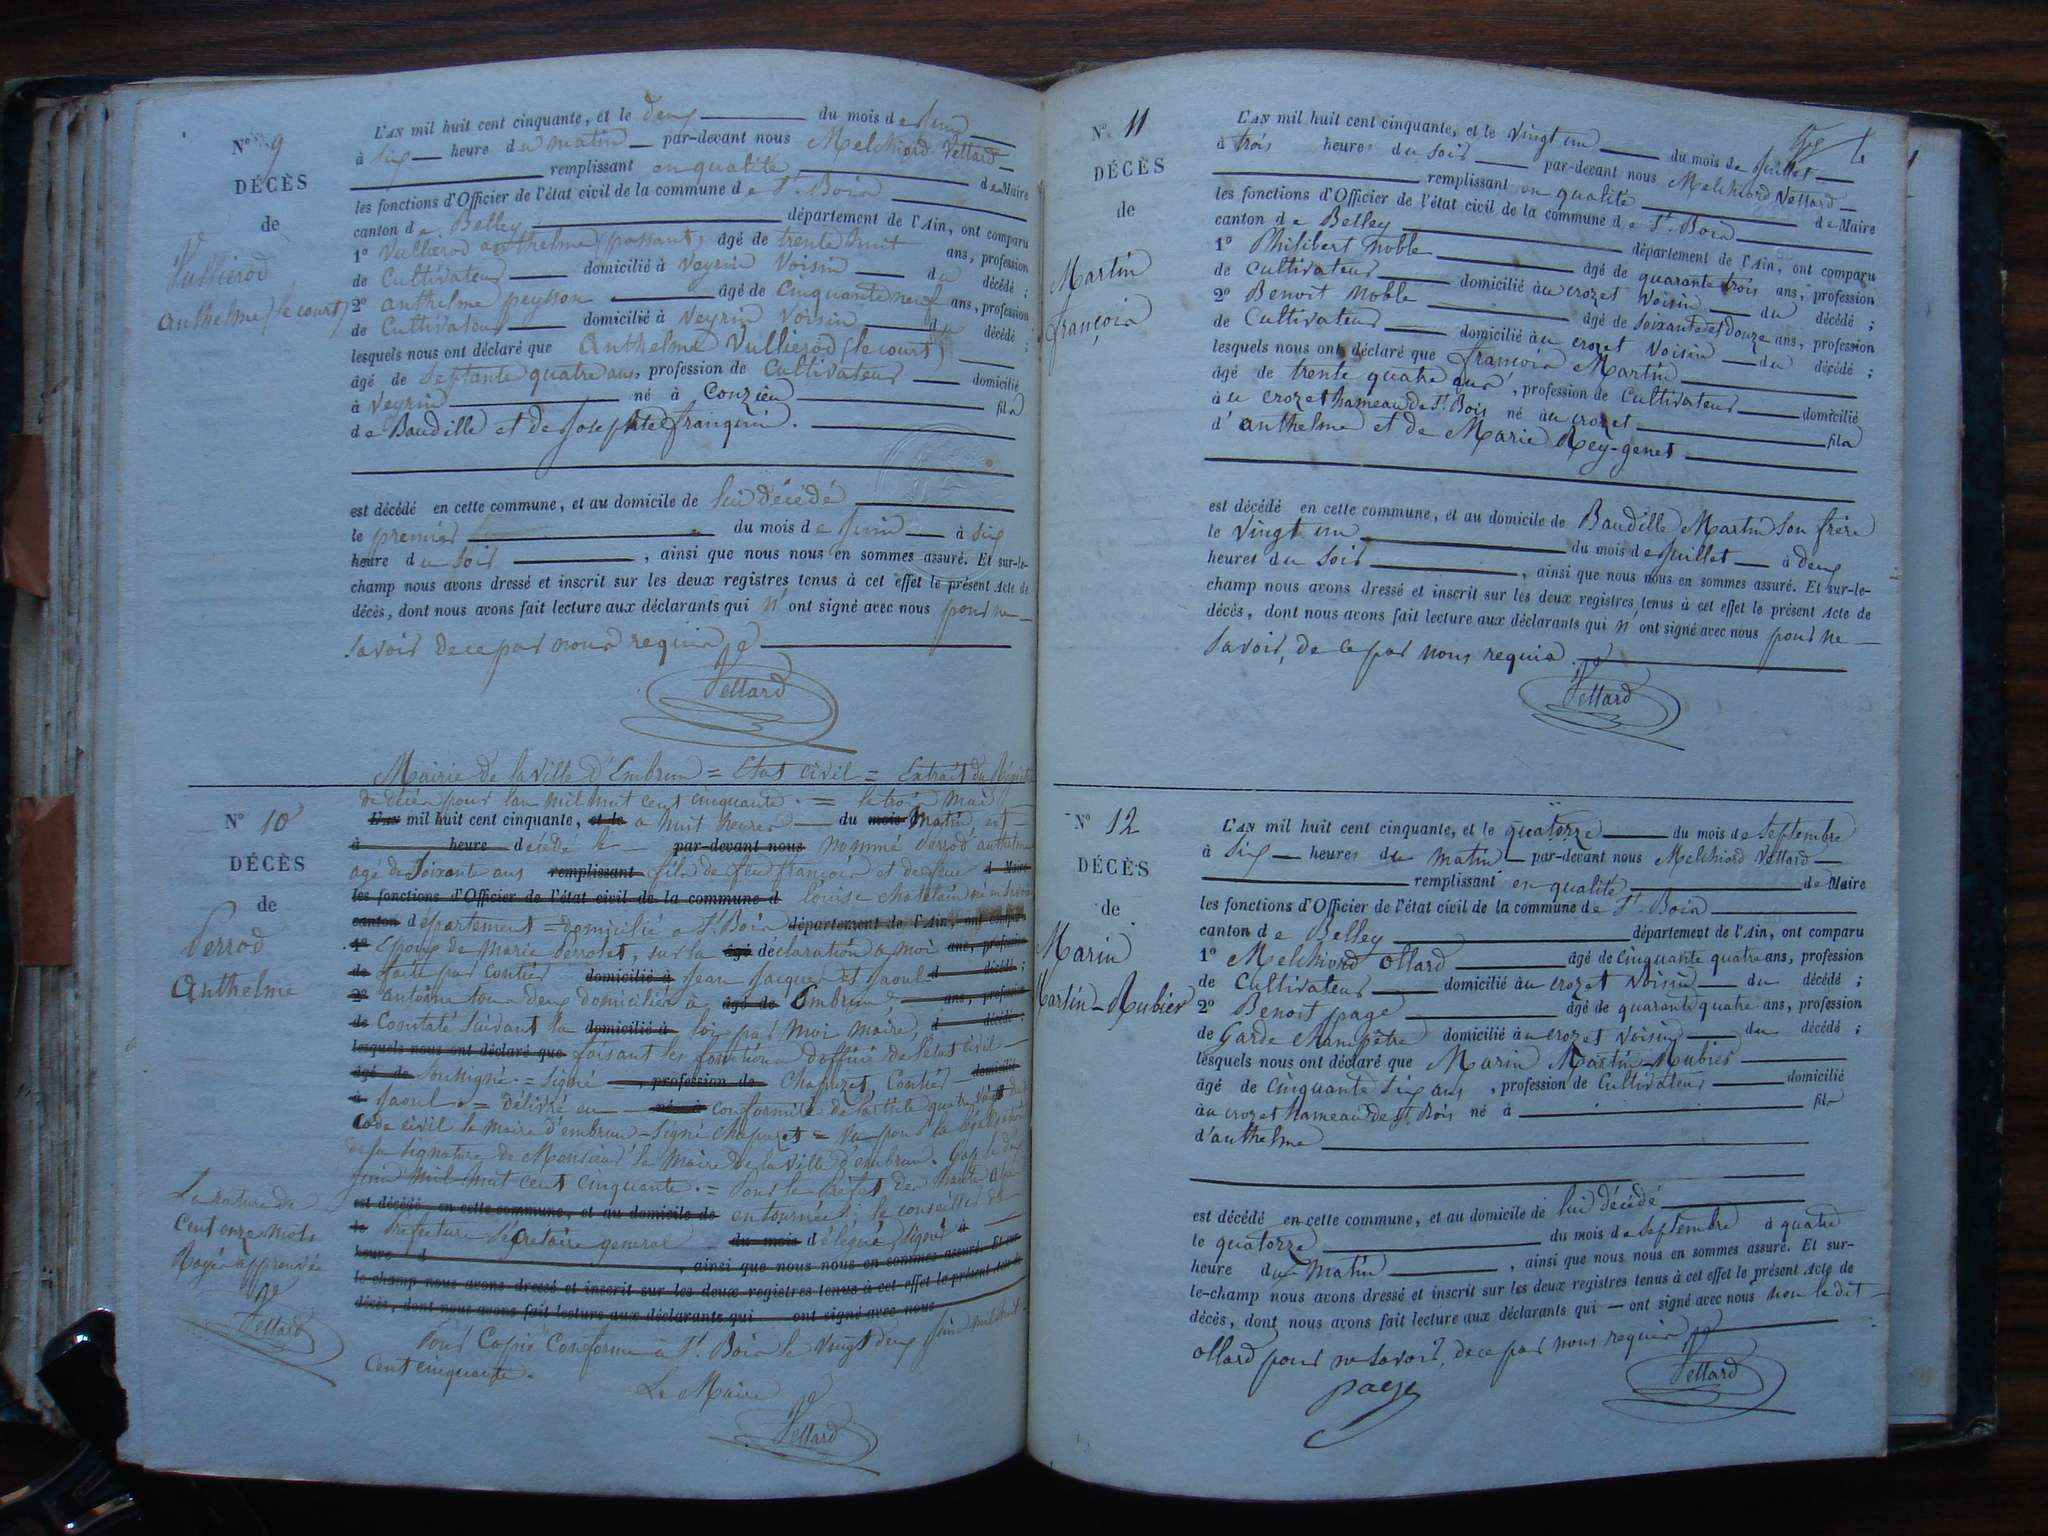 N° 9
DÉCÈS
de
Vullierod
Anthelme (le court)
L'AN mil huit cent cinquante, et le deux du mois de Juin
à Six heure du matin par-devant nous Melchiord Vettard
remplissant en qualité de Maire
les fonctions d'Officier de l'état civil de la commune de St. Bois
canton de Belley département de l'Ain, ont comparu
1° Vullierod anthelme (passant) âgé de trente huit ans, profession
de Cultivateur domicilié à Veyrin Voisin du décédé ;
2° anthelme peysson âgé de Cinquante neuf ans, profession
de Cultivateur domicilié à Veyrin Voisin du décédé ;
lesquels nous ont déclaré que Anthelme Vullierod (le court)
âgé de Septante quatre ans, profession de Cultivateur domicilié
à Veyrin né à Conzieu fils
de Baudille et de Josephte franquin.
est décédé en cette commune, et au domicile de lui décédé
le premier du mois de Juin à Six
heure du Soir , ainsi que nous nous en sommes assuré. Et sur-le-
champ nous avons dressé et inscrit sur les deux registres tenus à cet effet le présent Acte de
décès, dont nous avons fait lecture aux déclarants qui n'ont signé avec nous pour ne
savoir de ce par nous requis
Vettard
N° 10
DÉCÈS
de
Perrod
Anthelme
Mairie de la ville d'Embrun = Etat civil = Extrait du Registre
de décès pour l'an mil huit cent cinquante. = le trois mai
L'AN mil huit cent cinquante, et le a huit heures du mois Matin est
à heure décédé le par-devant nous nommé Perrod anthelme
agé de Soixante ans remplissant fils de feu françois et de feue de Maire
les fonctions d'Officier de l'état civil de la commune d louise chatelain né en
canton département = domicilié a St. Bois département de l'Ain, ont comparu
1° Epoux de Marie Perrolet, sur la âgé déclaration a moi ans, profession
de faite par Contier domicilié à Jean Jacques et Jaoul d décédé ;
2° antoine tous deux domiciliés à âgé de Embrun ans, profession
de Constaté Suivant la domicilié à loi par moi maire, d décédé ;
lesquels nous ont déclaré que faisant les fonctions d'officier de l'état civil
âgé de Soussigné. = Signé , profession de Chapuzet, Contier domicilié
à Jaoul. = délivré en né à conformité de l'article quatre vingt du
Code civil le maire d'embrun = Signé Chapuzet = Vu pour la légalisation
de la signature de Monsieur le Maire de la ville d'embrun. Gap le dix
Juin Mil huit cent cinquante. = Pour le Préfet des hautes alpes
est décédé en cette commune, et au domicile de en tournée, le conseiller de
le Prefecture Secretaire general du mois délégué Signé à
heure d , ainsi que nous nous en sommes assuré. Et sur-
le-champ nous avons dressé et inscrit sur les deux registres tenus à cet effet le présent Acte de
décès, dont nous avons fait lecture aux déclarants qui ont signé avec nous
Pour Copie Conforme à St. Bois le Vingt deux Juin mil huit
Cent cinquante.
Le Maire
Vettard
La rature de
Cent onze mots
Rayés approuvée
Vettard
N° 11
DÉCÈS
de
Martin
françois
L'AN mil huit cent cinquante, et le Vingt un du mois de Juillet
à trois heures du Soir par-devant nous Melchiord Vettard
remplissant en qualité de Maire
les fonctions d'Officier de l'état civil de la commune de St. Bois
canton de Belley département de l'Ain, ont comparu
1° Philibert Noble âgé de quarante trois ans, profession
de Cultivateur domicilié au crozet Voisin du décédé ;
2° Benoit Noble âgé de Soixante et douze ans, profession
de Cultivateur domicilié au crozet Voisin du décédé ;
lesquels nous ont déclaré que françois Martin
âgé de trente quatre ans , profession de Cultivateur domicilié
à u crozet hameau de St. Bois né au crozet fils
d'anthelme et de Marie Rey-genet
est décédé en cette commune, et au domicile de Baudille Martin Son frère
le Vingt un du mois de Juillet à deux
heures du Soir , ainsi que nous nous en sommes assuré. Et sur-le-
champ nous avons dressé et inscrit sur les deux registres tenus à cet effet le présent Acte de
décès, dont nous avons fait lecture aux déclarants qui n'ont signé avec nous pour ne
savoir, de ce par nous requis.
Vettard
N° 12
DÉCÈS
de
Marin
Martin-Rubier
L'AN mil huit cent cinquante, et le quatorze du mois de Septembre
à Six heures du matin par-devant nous Melchiord Vettard
remplissant en qualité de Maire
les fonctions d'Officier de l'état civil de la commune de St. Bois
canton de Belley département de l'Ain, ont comparu
1° Melchiord ollard âgé de Cinquante quatre ans, profession
de Cultivateur domicilié au crozet Voisin du décédé ;
2° Benoit page âgé de quarante quatre ans, profession
de Garde Champêtre domicilié au crozet Voisin du décédé ;
lesquels nous ont déclaré que Marin Martin-Rubier
âgé de Cinquante Six ans , profession de Cultivateur domicilié
à u crozet hameau de St. Bois né à fils
d'anthelme
est décédé en cette commune, et au domicile de lui décédé
le quatorze du mois de Septembre à quatre
heure du Matin , ainsi que nous nous en sommes assuré. Et sur-
le-champ nous avons dressé et inscrit sur les deux registres tenus à cet effet le présent Acte de
décès, dont nous avons fait lecture aux déclarants qui ont signé avec nous non le dit
ollard pour ne savoir, de ce par nous requis
page
Vettard